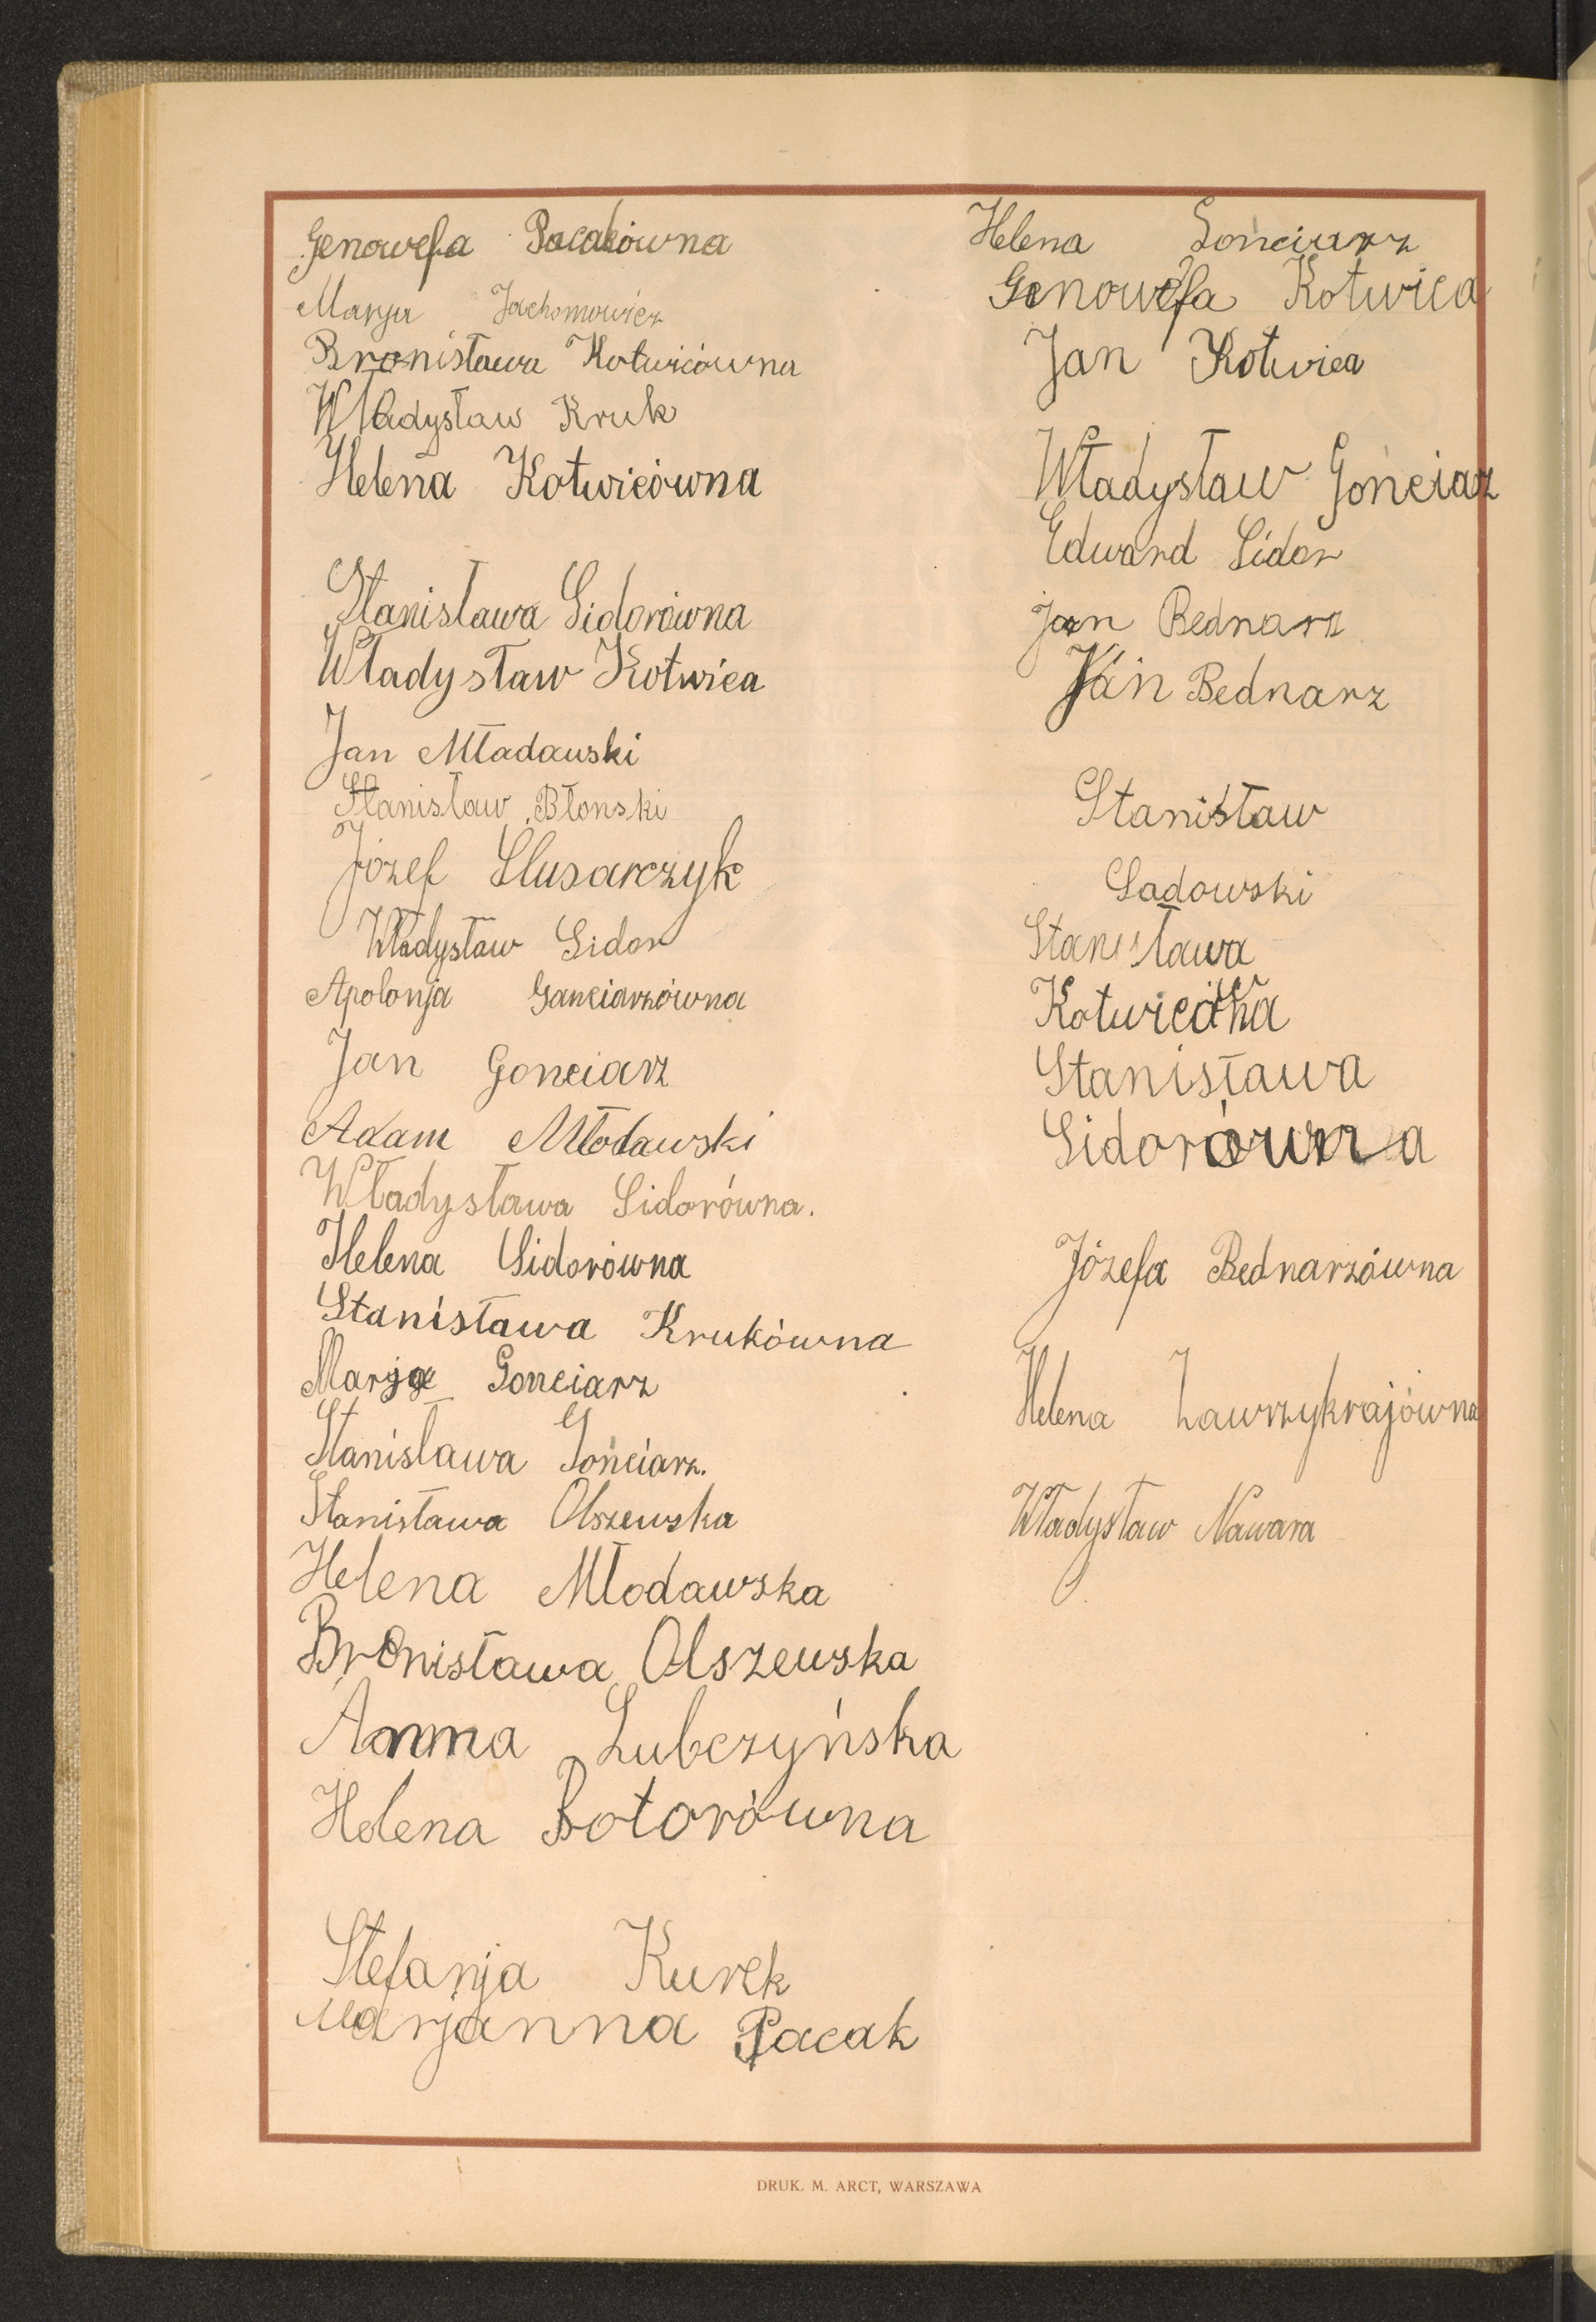 Genowefa Pacakówna
Marja Jachomowicz
Bronisława Kotwicówna
Władysław Kruk
Helena Kotwicówna
Stanisława Sidorówna
Władysław Kotwica
Jan Mładawski
Stanisław Błonski
Józef Slusarczyk
Władysław Sidor
Apolonja Ganciarzówna
Jan Gonciarz
Adam Młodawski
Władysława Sidorówna.
Helena Sidorówna
Stanisława Krukówna
Marja Gonciarz
Stanisława Gońciarz.
Stanisława Olszewska
Helena Młodawska
Bronisława Olszewska
Anna Lubczyńska
Helena Botorówna
Stefanja Kurek
Marjanna Pacak
Helena Gońciarz
Genowefa Kotwica
Jan Kotwica
Władysław Gońciarz
Edward Sidor
Jan Bednarz
Jan Bednarz
Stanisław
Sadowski
Stanisława
Kotwicówna
Stanisława
Sidorówna
Józefa Bednarzówna
Helena Zawrzykrajówna
Władysław Nawara
DRUK. M. ARCT, WARSZAWA